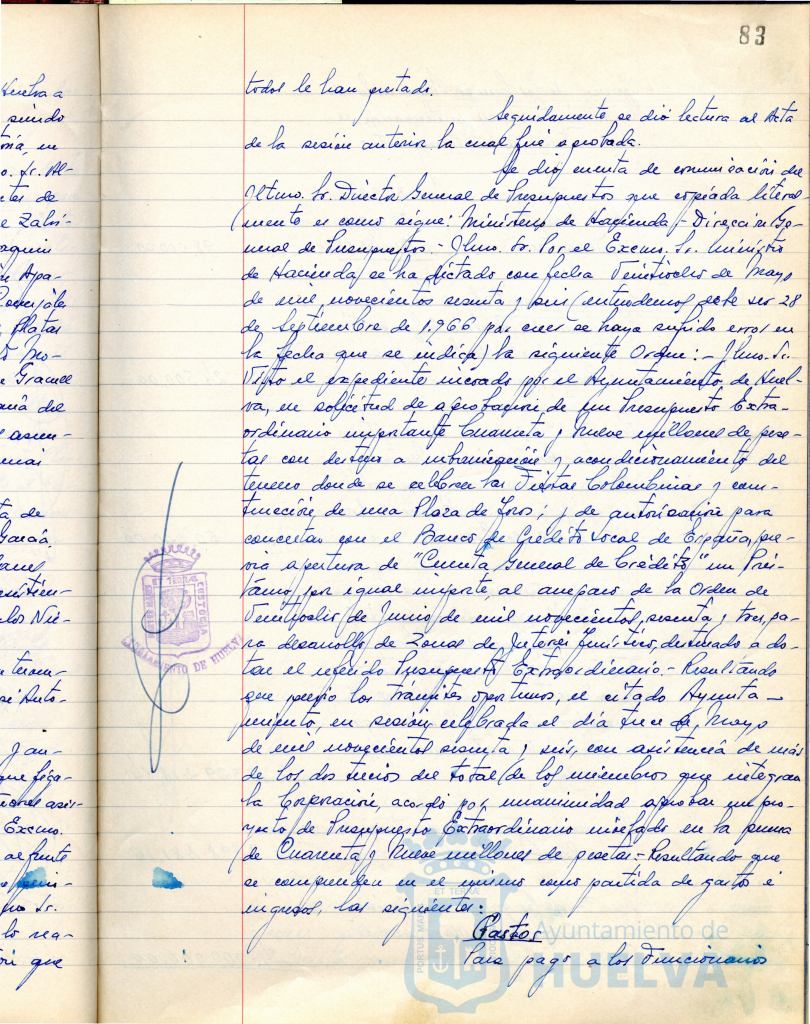 83
todos le han prestado.
Seguidamente se dió lectura al Acta
de la sesión anterior la cual fué aprobada.
Se dio cuenta de comunicación del
Iltmo. Sr. Director General de Presupuestos que copiada literal-
mente es como sigue: Ministerio de Hacienda.- Dirección Ge-
neral de Presupuestos.- Ilmo. Sr. Por el Excmo. Sr. Ministro
de Hacienda, se ha dictado con fecha Veintiocho de Mayo
de mil novecientos sesenta y seis (entendemos debe ser 28
de Septiembre de 1.966 por creer se haya sufrido error en
la fecha que se indica) la siguiente Orden:- Ilmo. Sr.
Visto el expediente incoado por el Ayuntamiento de Huel-
va, en solicitud de aprobación de un Presupuesto Extra-
ordinario importante Cuarenta y Nueve millones de pese-
tas con destino a urbanización y acondicionamiento del
terreno donde se celebran las Fiestas Colombinas y cons-
trucción de una Plaza de Toros; y de autorización para
concertar con el Banco de Crédito Local de España, pre-
via apertura de "Cuenta General de Crédito" un Prés-
tamo, por igual importe, al amparo de la Orden de
Veintiocho de Junio de mil novecientos sesenta y tres, pa-
ra desarrollo de Zonas de Interés Turístico, destinado a do-
tar el referido Presupuesto Extraordinario.- Resultando
que previo los trámites oportunos, el citado Ayunta-
miento, en sesión celebrada el día trece de Mayo
de mil novecientos sesenta y seis, con asistencia de más
de los dos tercios del total de los miembros que integran
la Corporación, acordó por unanimidad aprobar un pro-
yecto de Presupuesto Extraordinario nivelado en la suma
de Cuarenta y Nueve millones de pesetas.- Resultando que
se comprenden en el mismo como partida de gastos é
ingresos, las siguientes:
Gastos
Para pago a los Funcionarios
AYUNTAMIENTO DE HUELVA
Ayuntamiento de
HUELVA